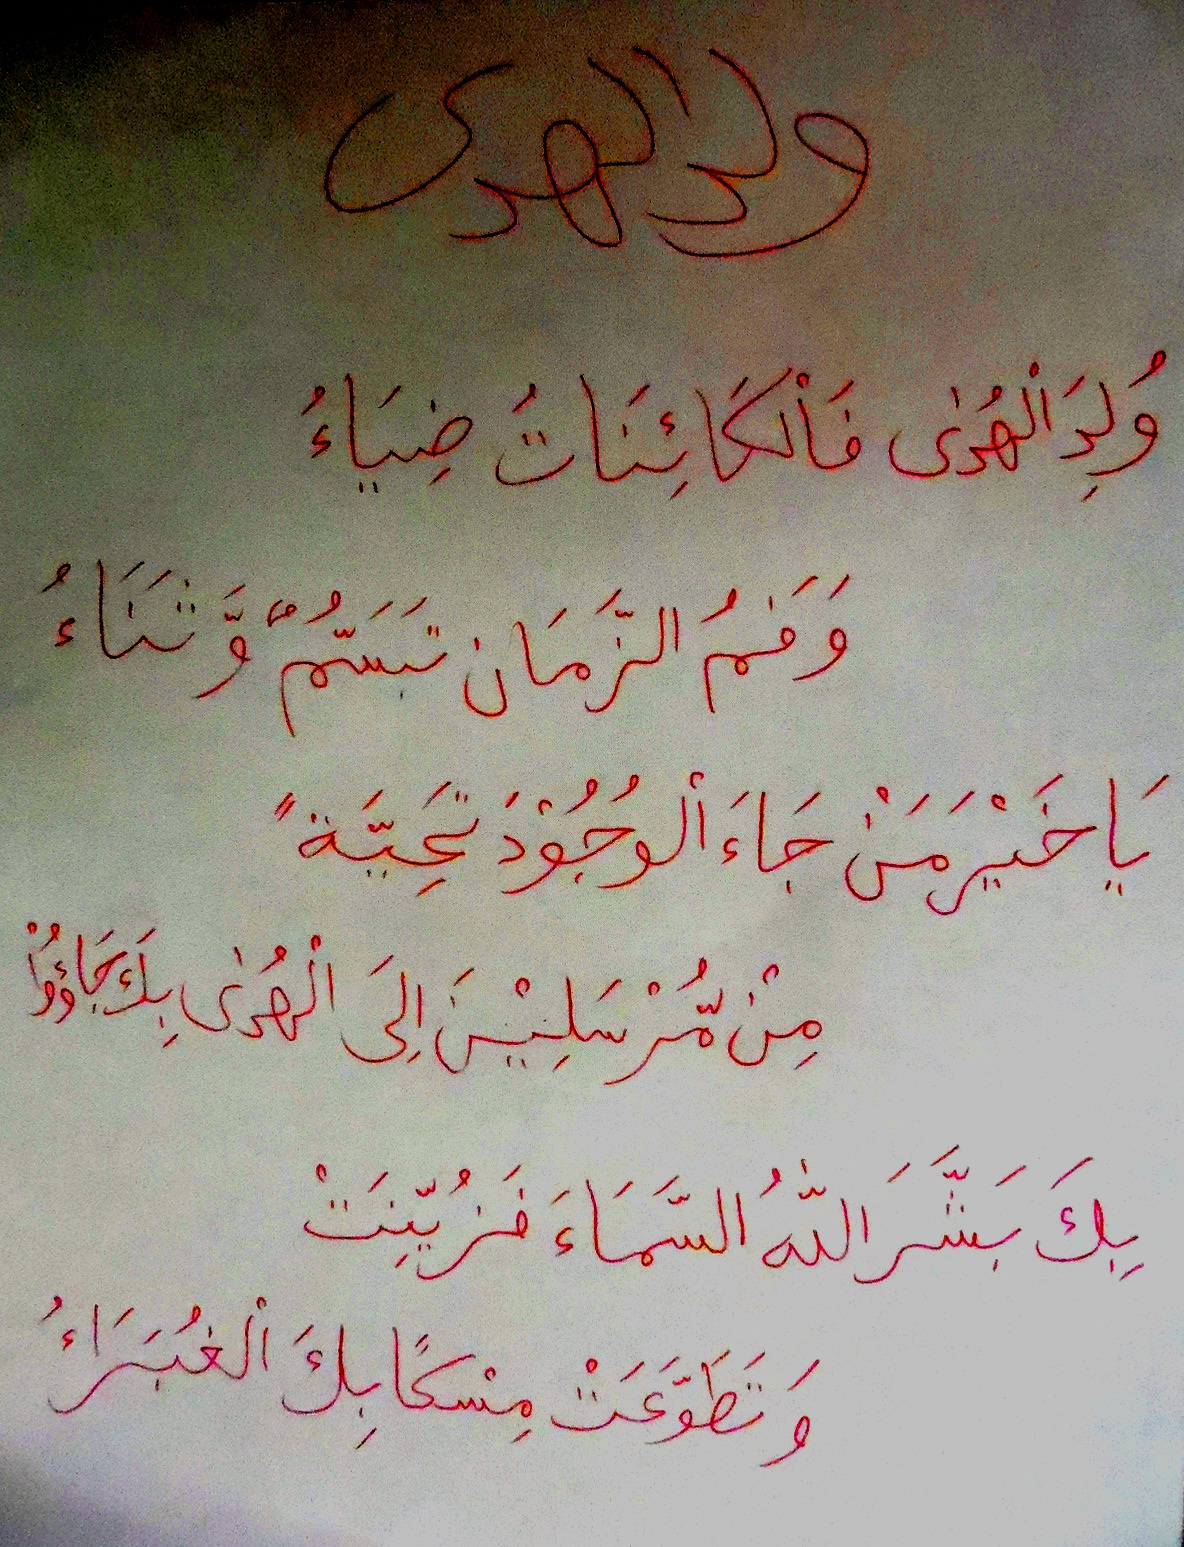 ولد الهدى
وُلِدَ الْهُدٰى فَالْكَائِنَاتُ ضِيَاءُ
وَفَمُ الزَّمَان تَبَسُّمٌ وَّثَنَاءُ
يَا خَيْرَ مَنْ جَاءَ الْوُجُوْدَ تَحِيَّةً
مِنْ مُّرْسَلِيْنَ اِلَى الْهُدٰى بِكَ جَاؤُوْا
بِكَ بَشَّرَ اللّٰهُ السَّمَاءَ فَزُيِّنَتْ
وَتَطَوَّعَتْ مِسْكًا بِكَ الْغُبَرَاءُ